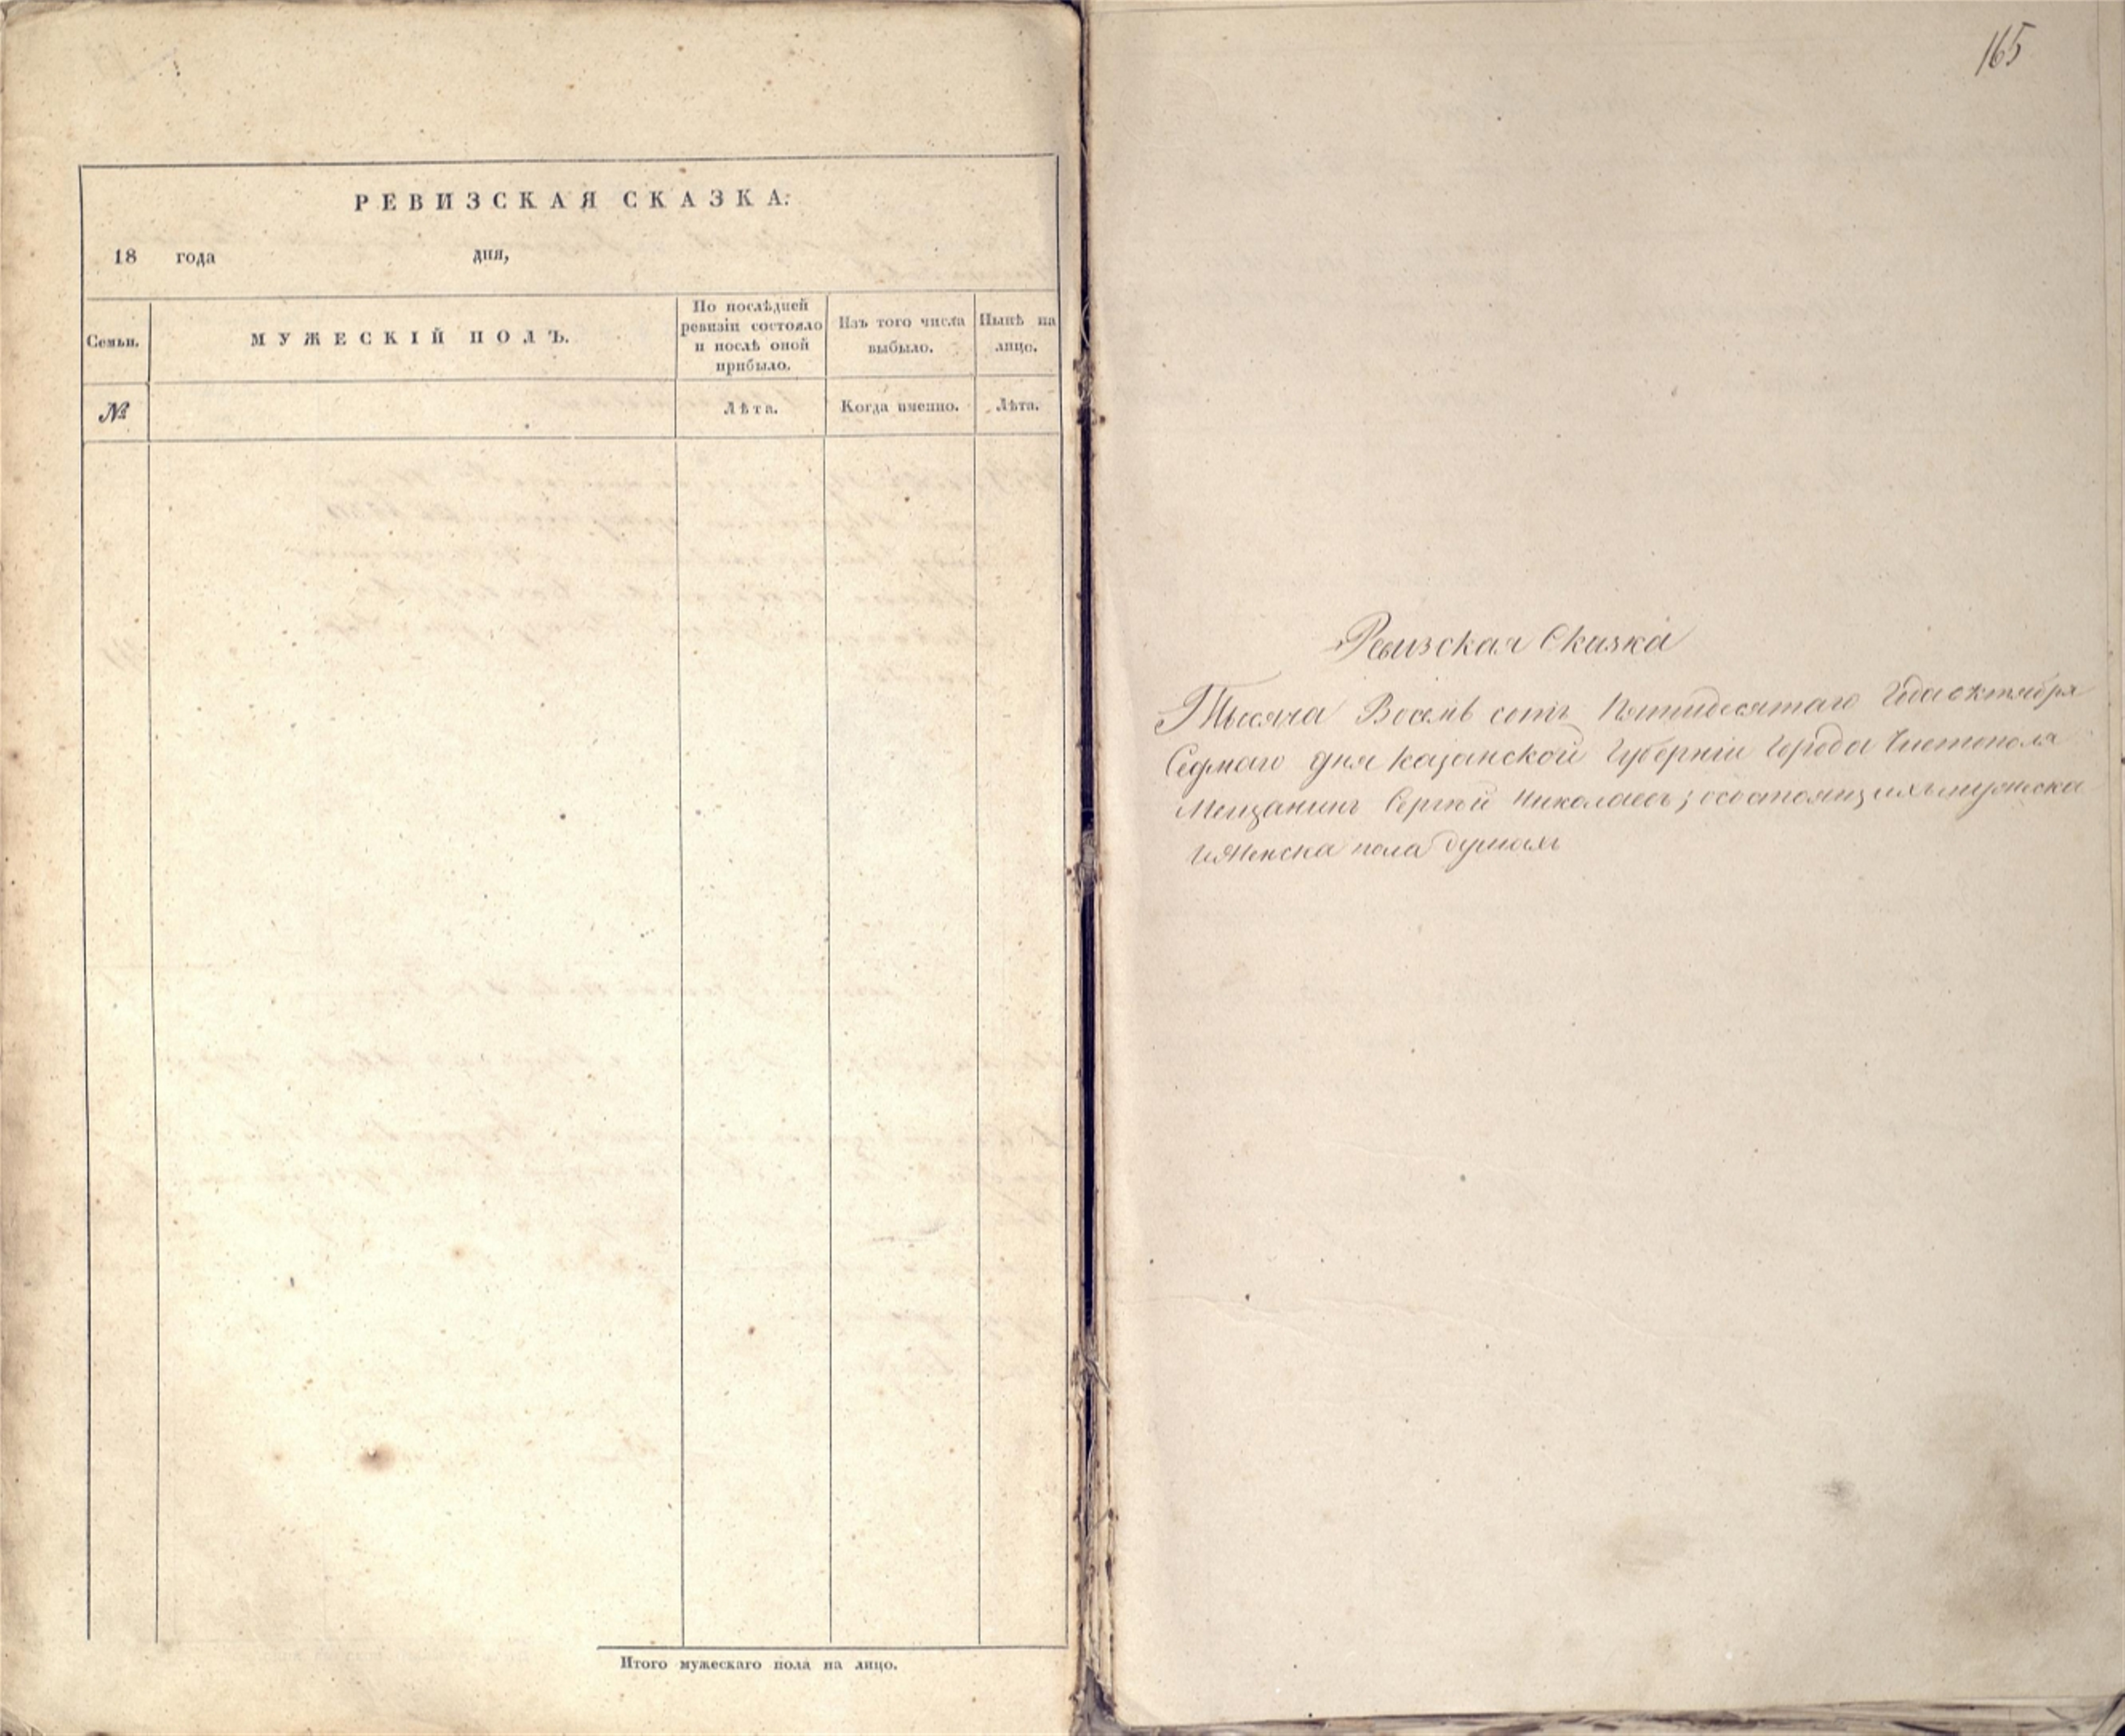 РЕВИЗСКАЯ СКАЗКА.
18 года дня,
Семьи.
МУЖЕСКІЙ ПОЛЪ.
По послѣдней
ревизіи состояло
и послѣ оной
прибыло.
Изъ того числа
выбыло.
Нынѣ на
лицо.
№
Лѣта.
Когда именно.
Лѣта.
Итого мужескаго пола на лицо.
165
Ревизская Сказка
Тысяча Восемь сотъ Пятидесятаго Года октября
Седмаго дня Казанской Губерніи Города Чистополя
Мещанинъ Сергѣй Николаевъ; осостоящихъ мужеска
иженска пола душахъ